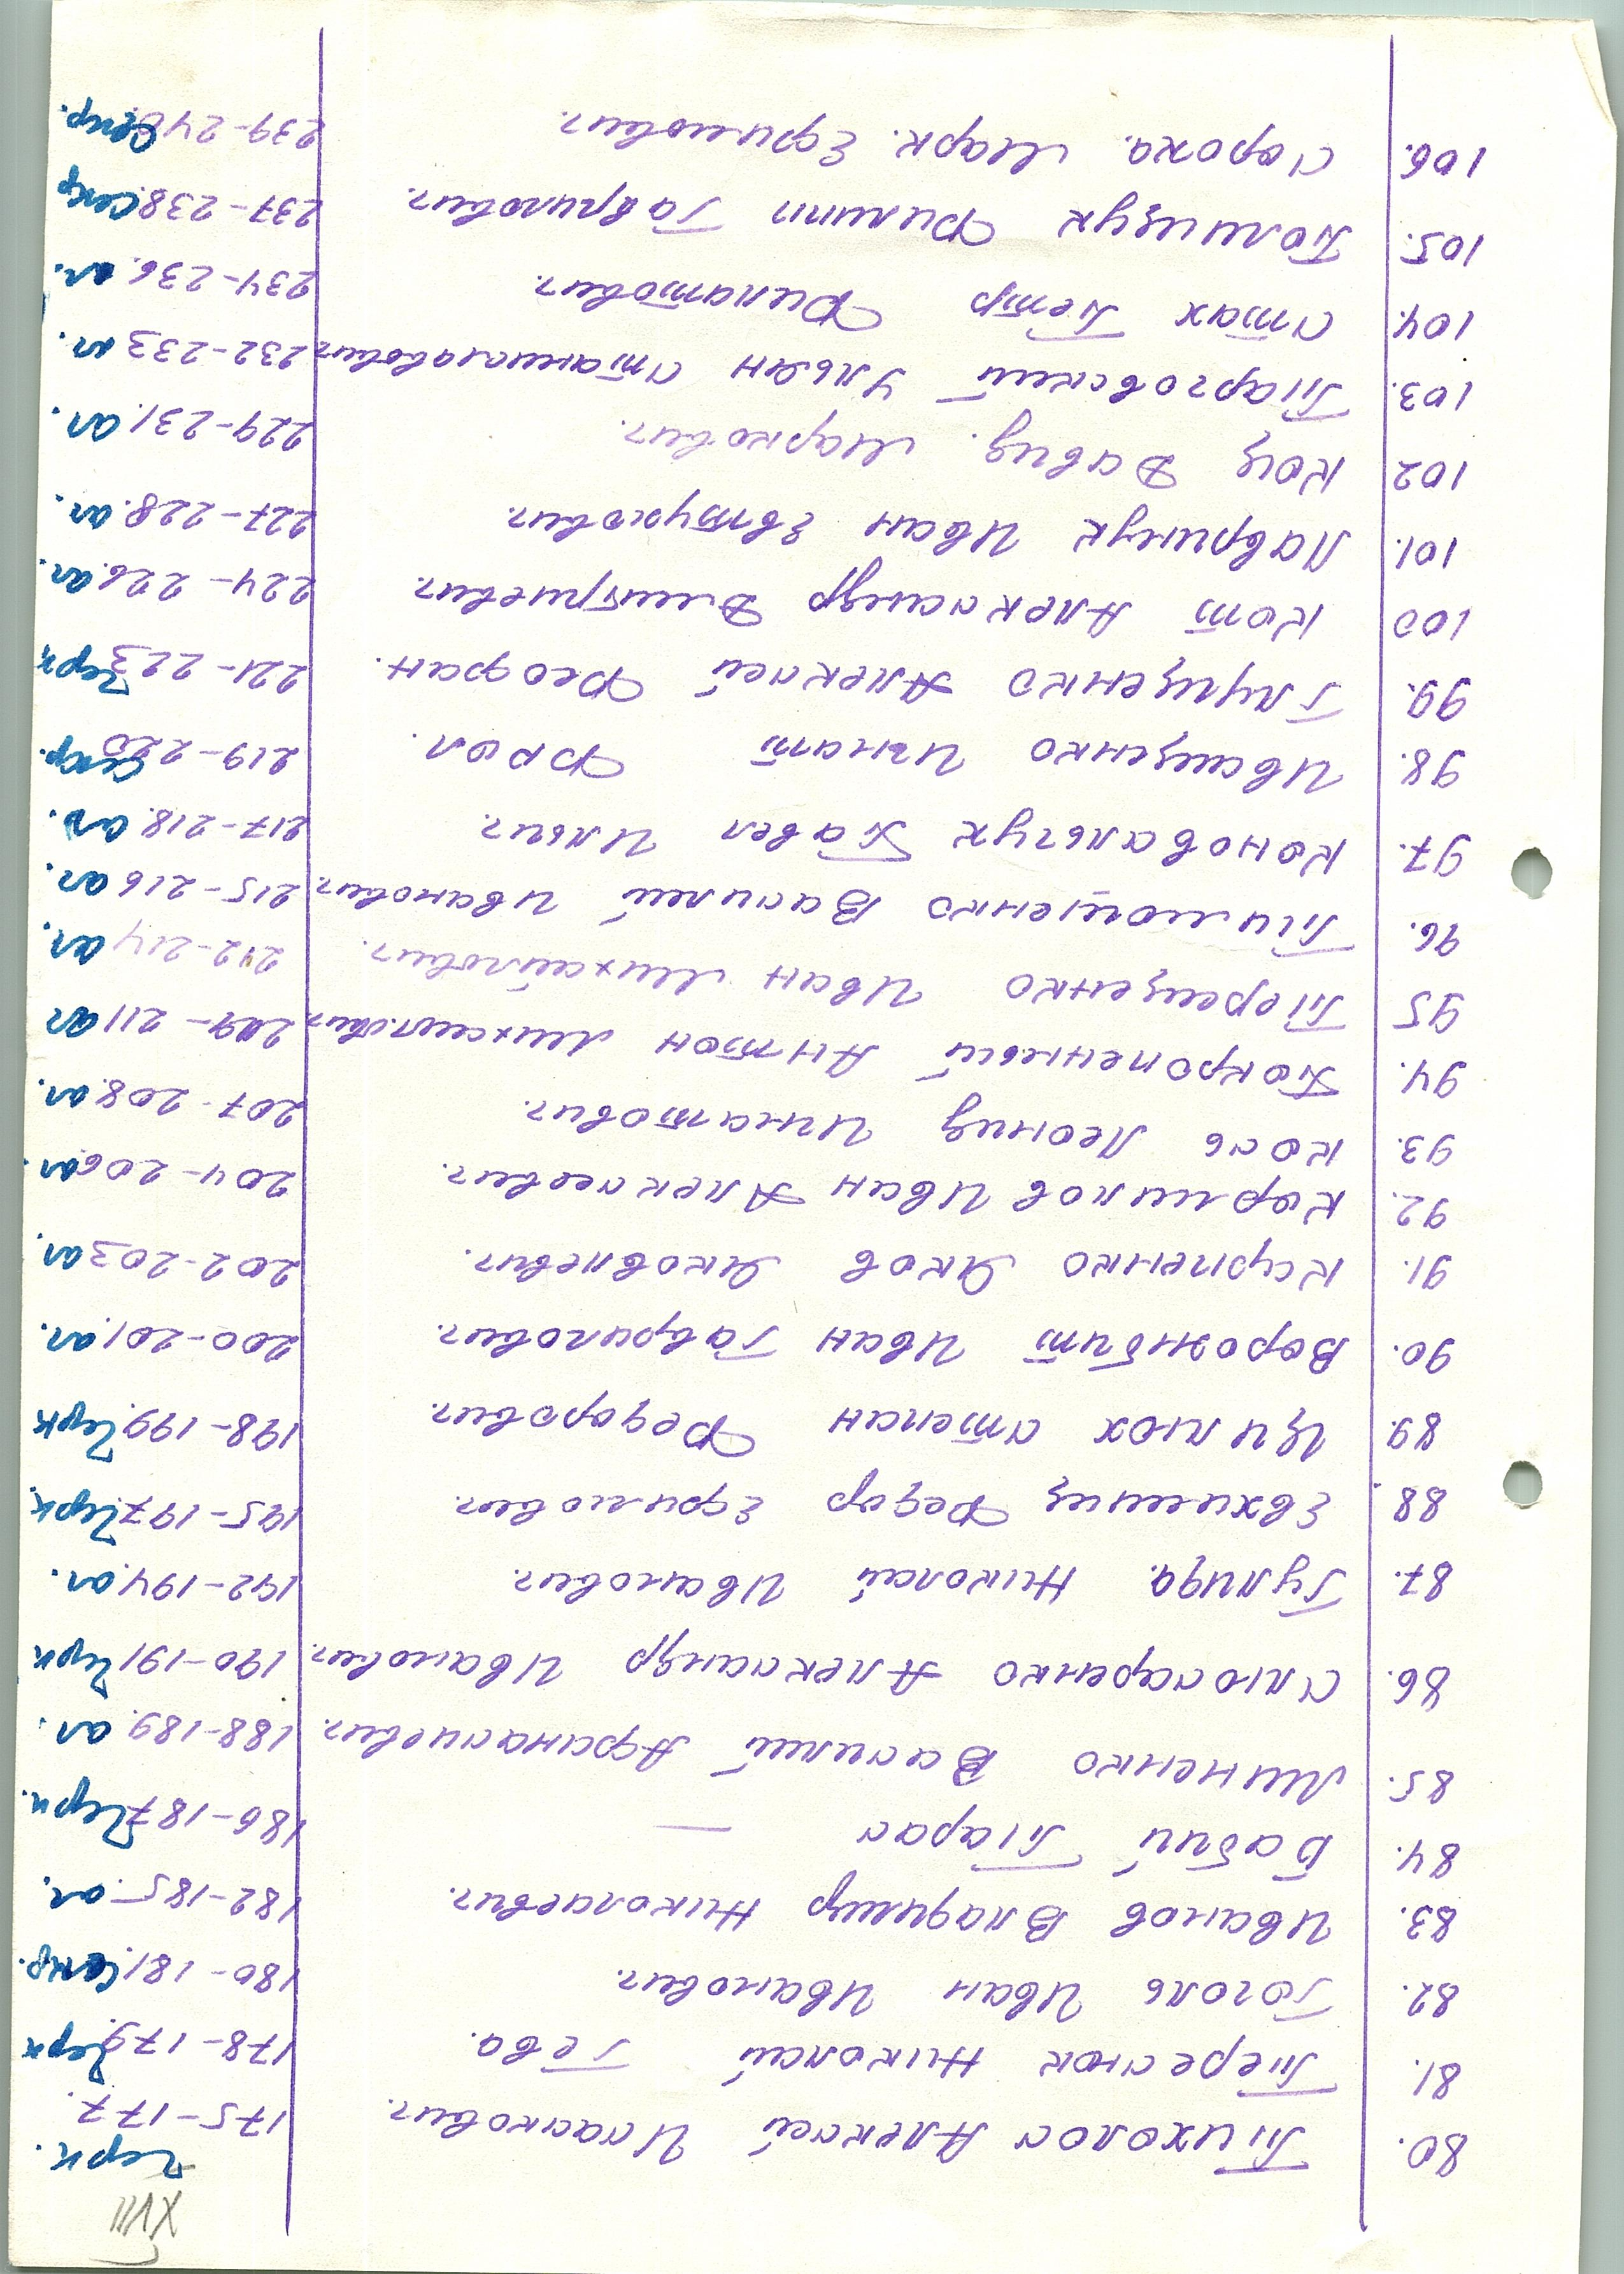 XVIII
80. Тихолос Алексей Исакович. 175-177. Черк.
81. Тереснюк Николай Гева. 178-179. Черк
82. Гоголь Иван Иванович. 180-181. Сточ.
83. Иванов Владимир Николаевич. 182-185. ал.
84. Бабий Тарас — 186-187. Черк.
85. Миненко Василий Афанасиевич. 188-189. ал.
86. Слюсаренко Александр Иванович. 190-191 Черк
87. Гулида Николай Иванович. 192-194. ал.
88. Евхимец Федор Ефимович. 195-197. Черк.
89. Цилюх Степан Федорович. 198-199. Черк
90. Ворожбит Иван Гаврилович. 200-201. ал.
91. Курпенко Яков Яковлевич. 202-203 ал.
92. Кормилов Иван Алексеевич. 204-206 ал.
93. Кось Леонид Игнатович. 207-208. ал.
94. Покропенный Антон Михайлович. 209-211 ал
95 Терещенко Иван Михайлович. 212-214 ал.
96. Тимошенко Василий Иванович. 215-216 ал.
97. Коновальчук Павел Ильич. 217-218. ал.
98. Иващенко Игнат Фрол. 219-220
99. Глущенко Алексей Феофан. 221-223 Черк
100 Кот Александр Дмитриевич. 224-226. ал.
101. Лавринчук Иван Евтухович. 227-228. ал.
102 Коц Давид. Маркович. 229-231. ал.
103. Тарговский Ульян Станиславович. 232-233 ал.
104. Стах Петр Филатович. 234-236. ал.
105. Полищук Филипп Гаврилович. 237-238
106. Сорока. Марк. Ефимович. 239-24